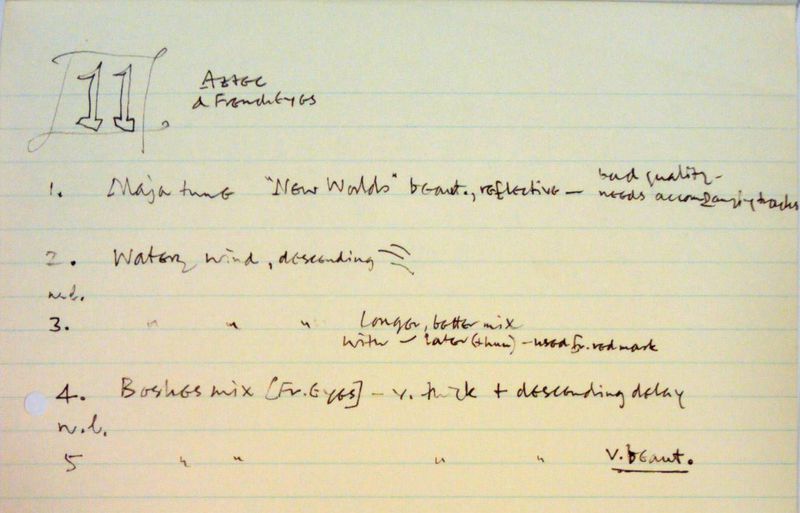 11.
Aztec
& French Eyes
1. Maja tune "New Worlds" beaut., reflective – bad quality –
needs accompanying tracks
2. Watery wind, descending
n.b.
3. " " " Longer, better mix
with – later (+ hum) – used for red mark
4. mix [Fr. Eyes] – v. thick + descending delay
n.b.
5 " " " " v. beaut.